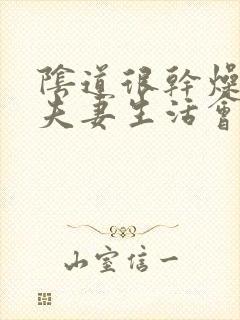 陰道很幹燥
夫妻生活會
山室信一